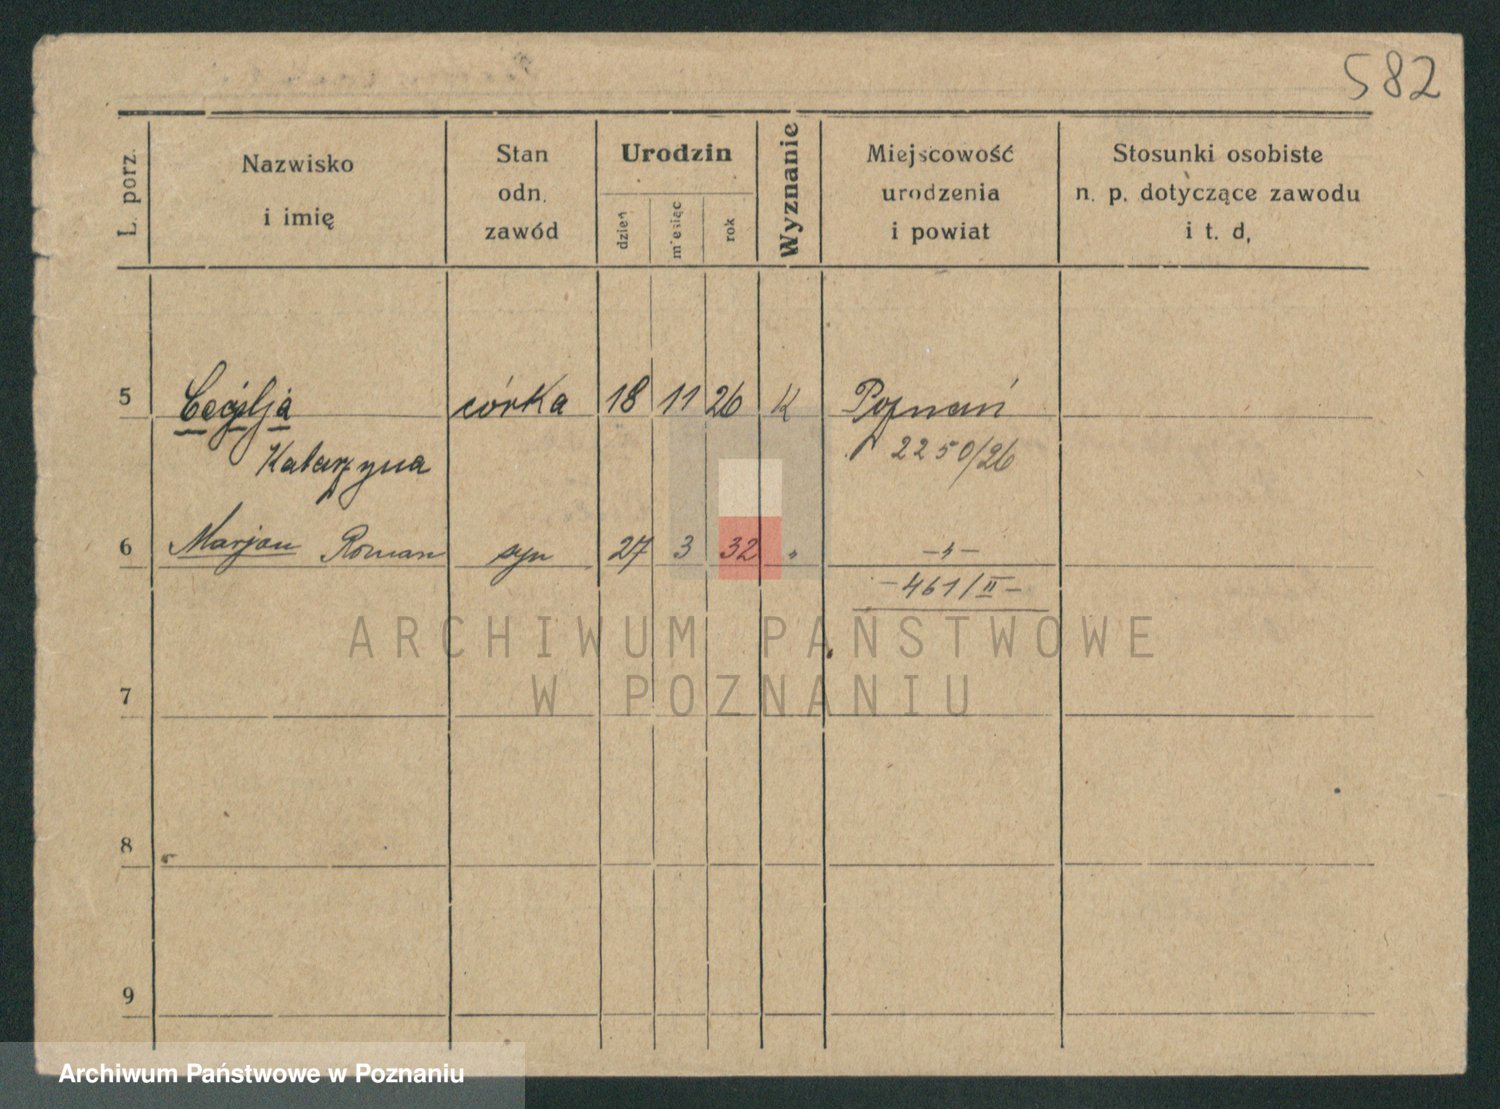 582
L. porz.
Nazwisko
i imię
Stan
odn.
zawód
Urodzin
dzień
miesiąc
rok
Wyznanie
Miejscowość
urodzenia
i powiat
Stosunki osobiste
n. p. dotyczące zawodu
i t. d,
5 Cecylja córka 18 11 26 K Poznań
Katarzyna 2250/26
6 Marjan Roman syn 27 3 32 " -"-
-461/II-
ARCHIWUM PAŃSTWOWE
W POZNANIU
7
8
9
Archiwum Państwowe w Poznaniu